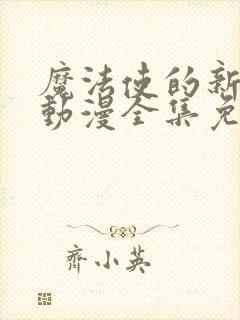 魔法使的新
動漫全集免
齊小英